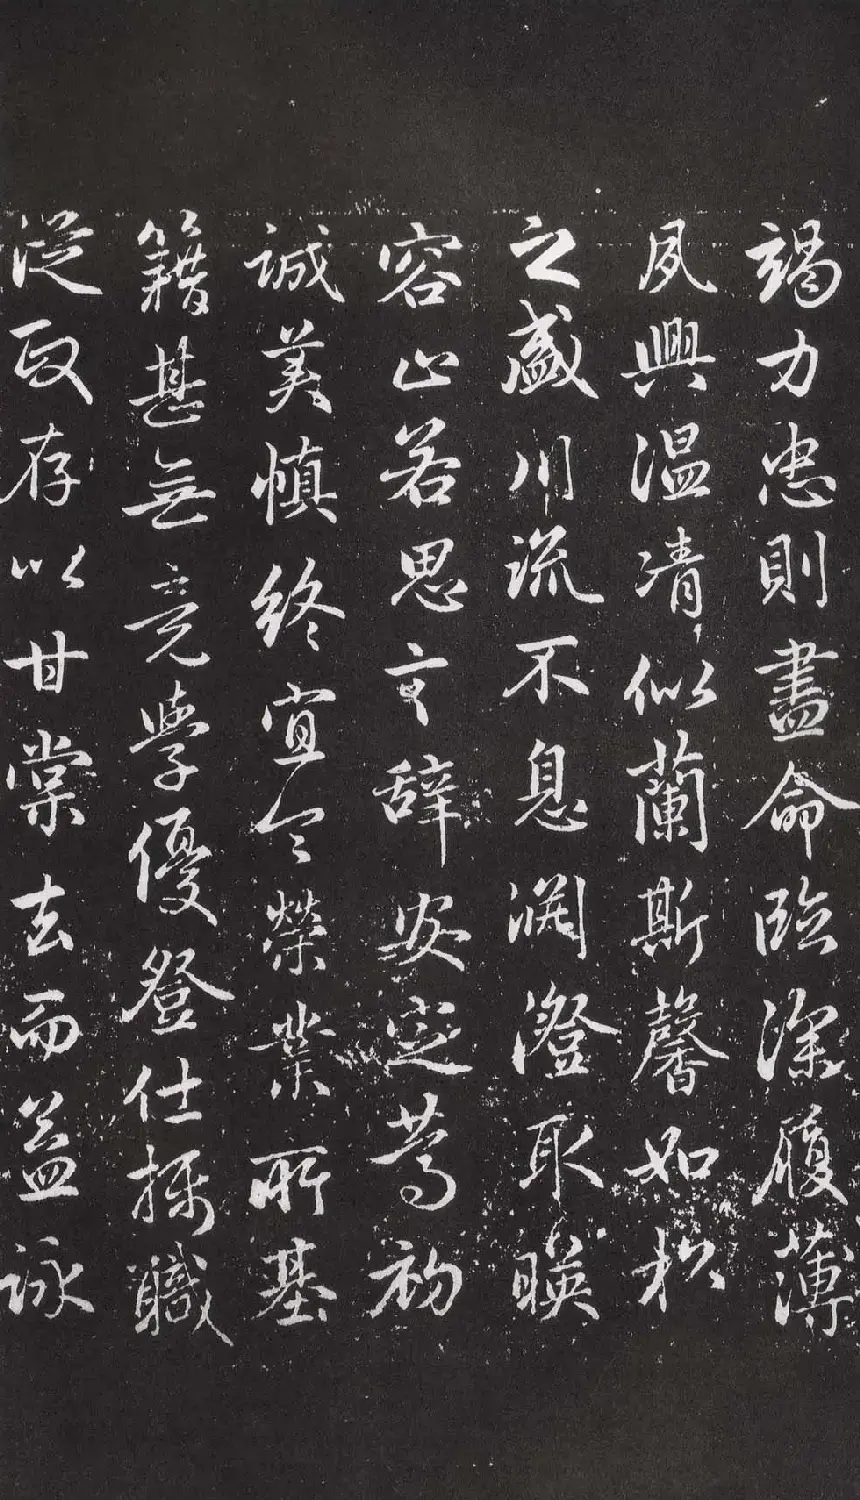 竭力忠則盡命臨深履薄
夙興温凊似蘭斯馨如松
之盛川流不息淵澄取暎
容止若思言辞安定篤初
誠美慎終宜令榮業所基
籍甚無竟學優登仕攝職
從政存以甘棠去而益詠